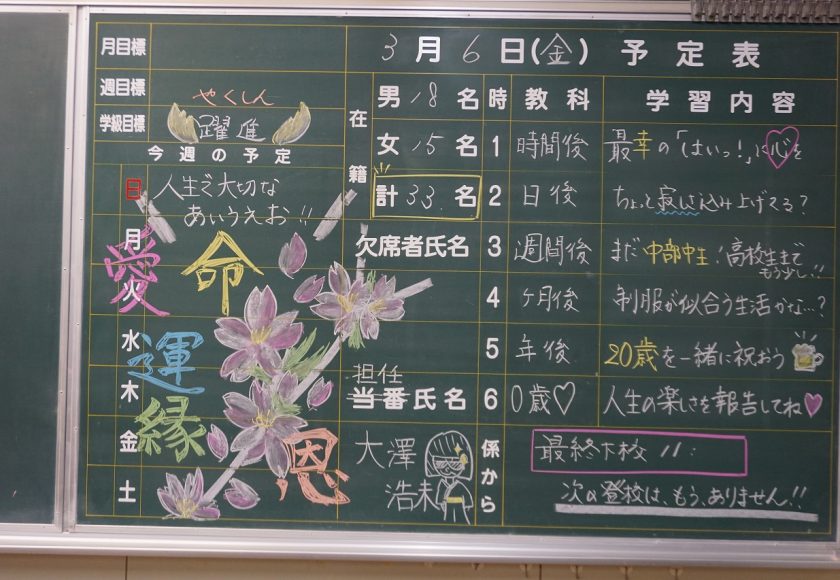 月目標
週目標
学級目標
やくしん
躍進
今週の予定
日 人生で大切な
あいうえお!!
月
火
水
木
金
土
愛
命
運
縁
恩
3月6日(金) 予定表
在籍
男 18名
女 15名
計 33名
欠席者氏名
担任
当番氏名
大澤
時 教科 学習内容
1 時間後 最幸の「はいっ!」に心を
2 日後 ちょっと寂しさ込み上げてる?
3 週間後 まだ中部中生!高校生まで
もう少し!!
4 ヶ月後 制服が似合う生活かな…?
5 年後 20歳を一緒に祝おう
6 0歳♡ 人生の楽しさを報告してね♥
係から
最終下校
次の登校は、もう、ありません!!